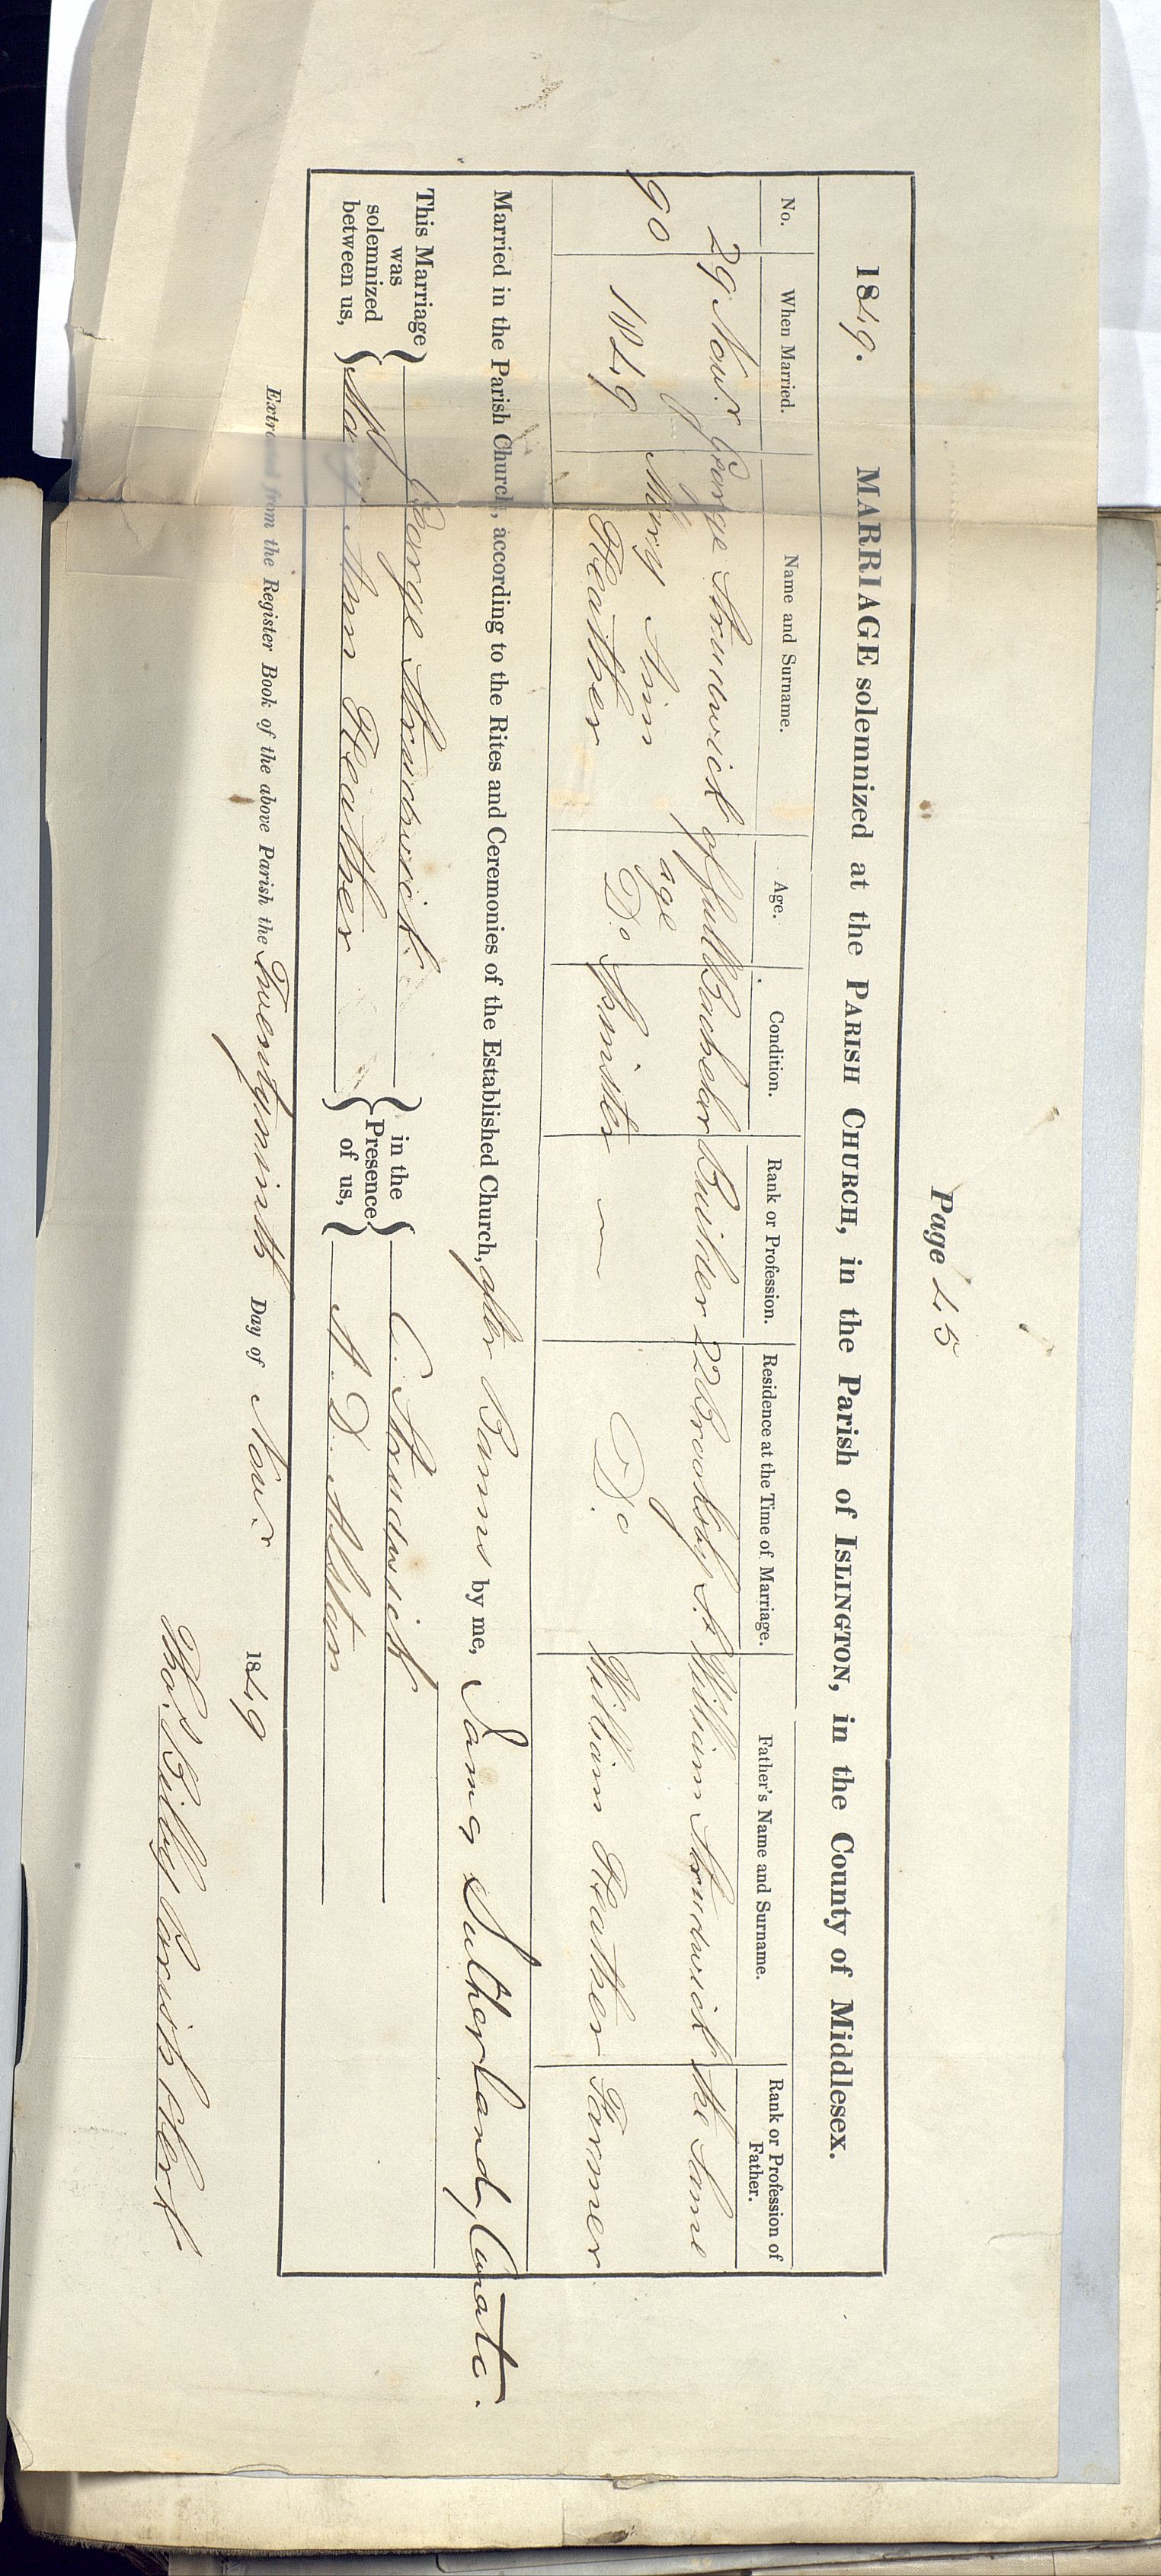 Page 45
1849. MARRIAGE solemnized at the PARISH CHURCH, in the Parish of ISLINGTON, in the County of Middlesex.
No. When Married. Name and Surname. Age. Condition. Rank or Profession. Residence at the Time of Marriage. Father's Name and Surname. Rank or Profession of Father.
90 29 Novr 1849 George Strudwick of full age Bachelor Builder 22 Brooksby St William Strudwick the same
Mary Ann Heather Do Spinster — Do William Heather Farmer
Married in the Parish Church, according to the Rites and Ceremonies of the Established Church, after Banns by me, James Sutherland, Curate.
This Marriage was solemnized between us, George Strudwick in the Presence of us, C. Strudwick
Mary Ann Heather A. D. Alston
Extracted from the Register Book of the above Parish the Twentyninth Day of Novr 1849
Thos Bilby Parish Clerk